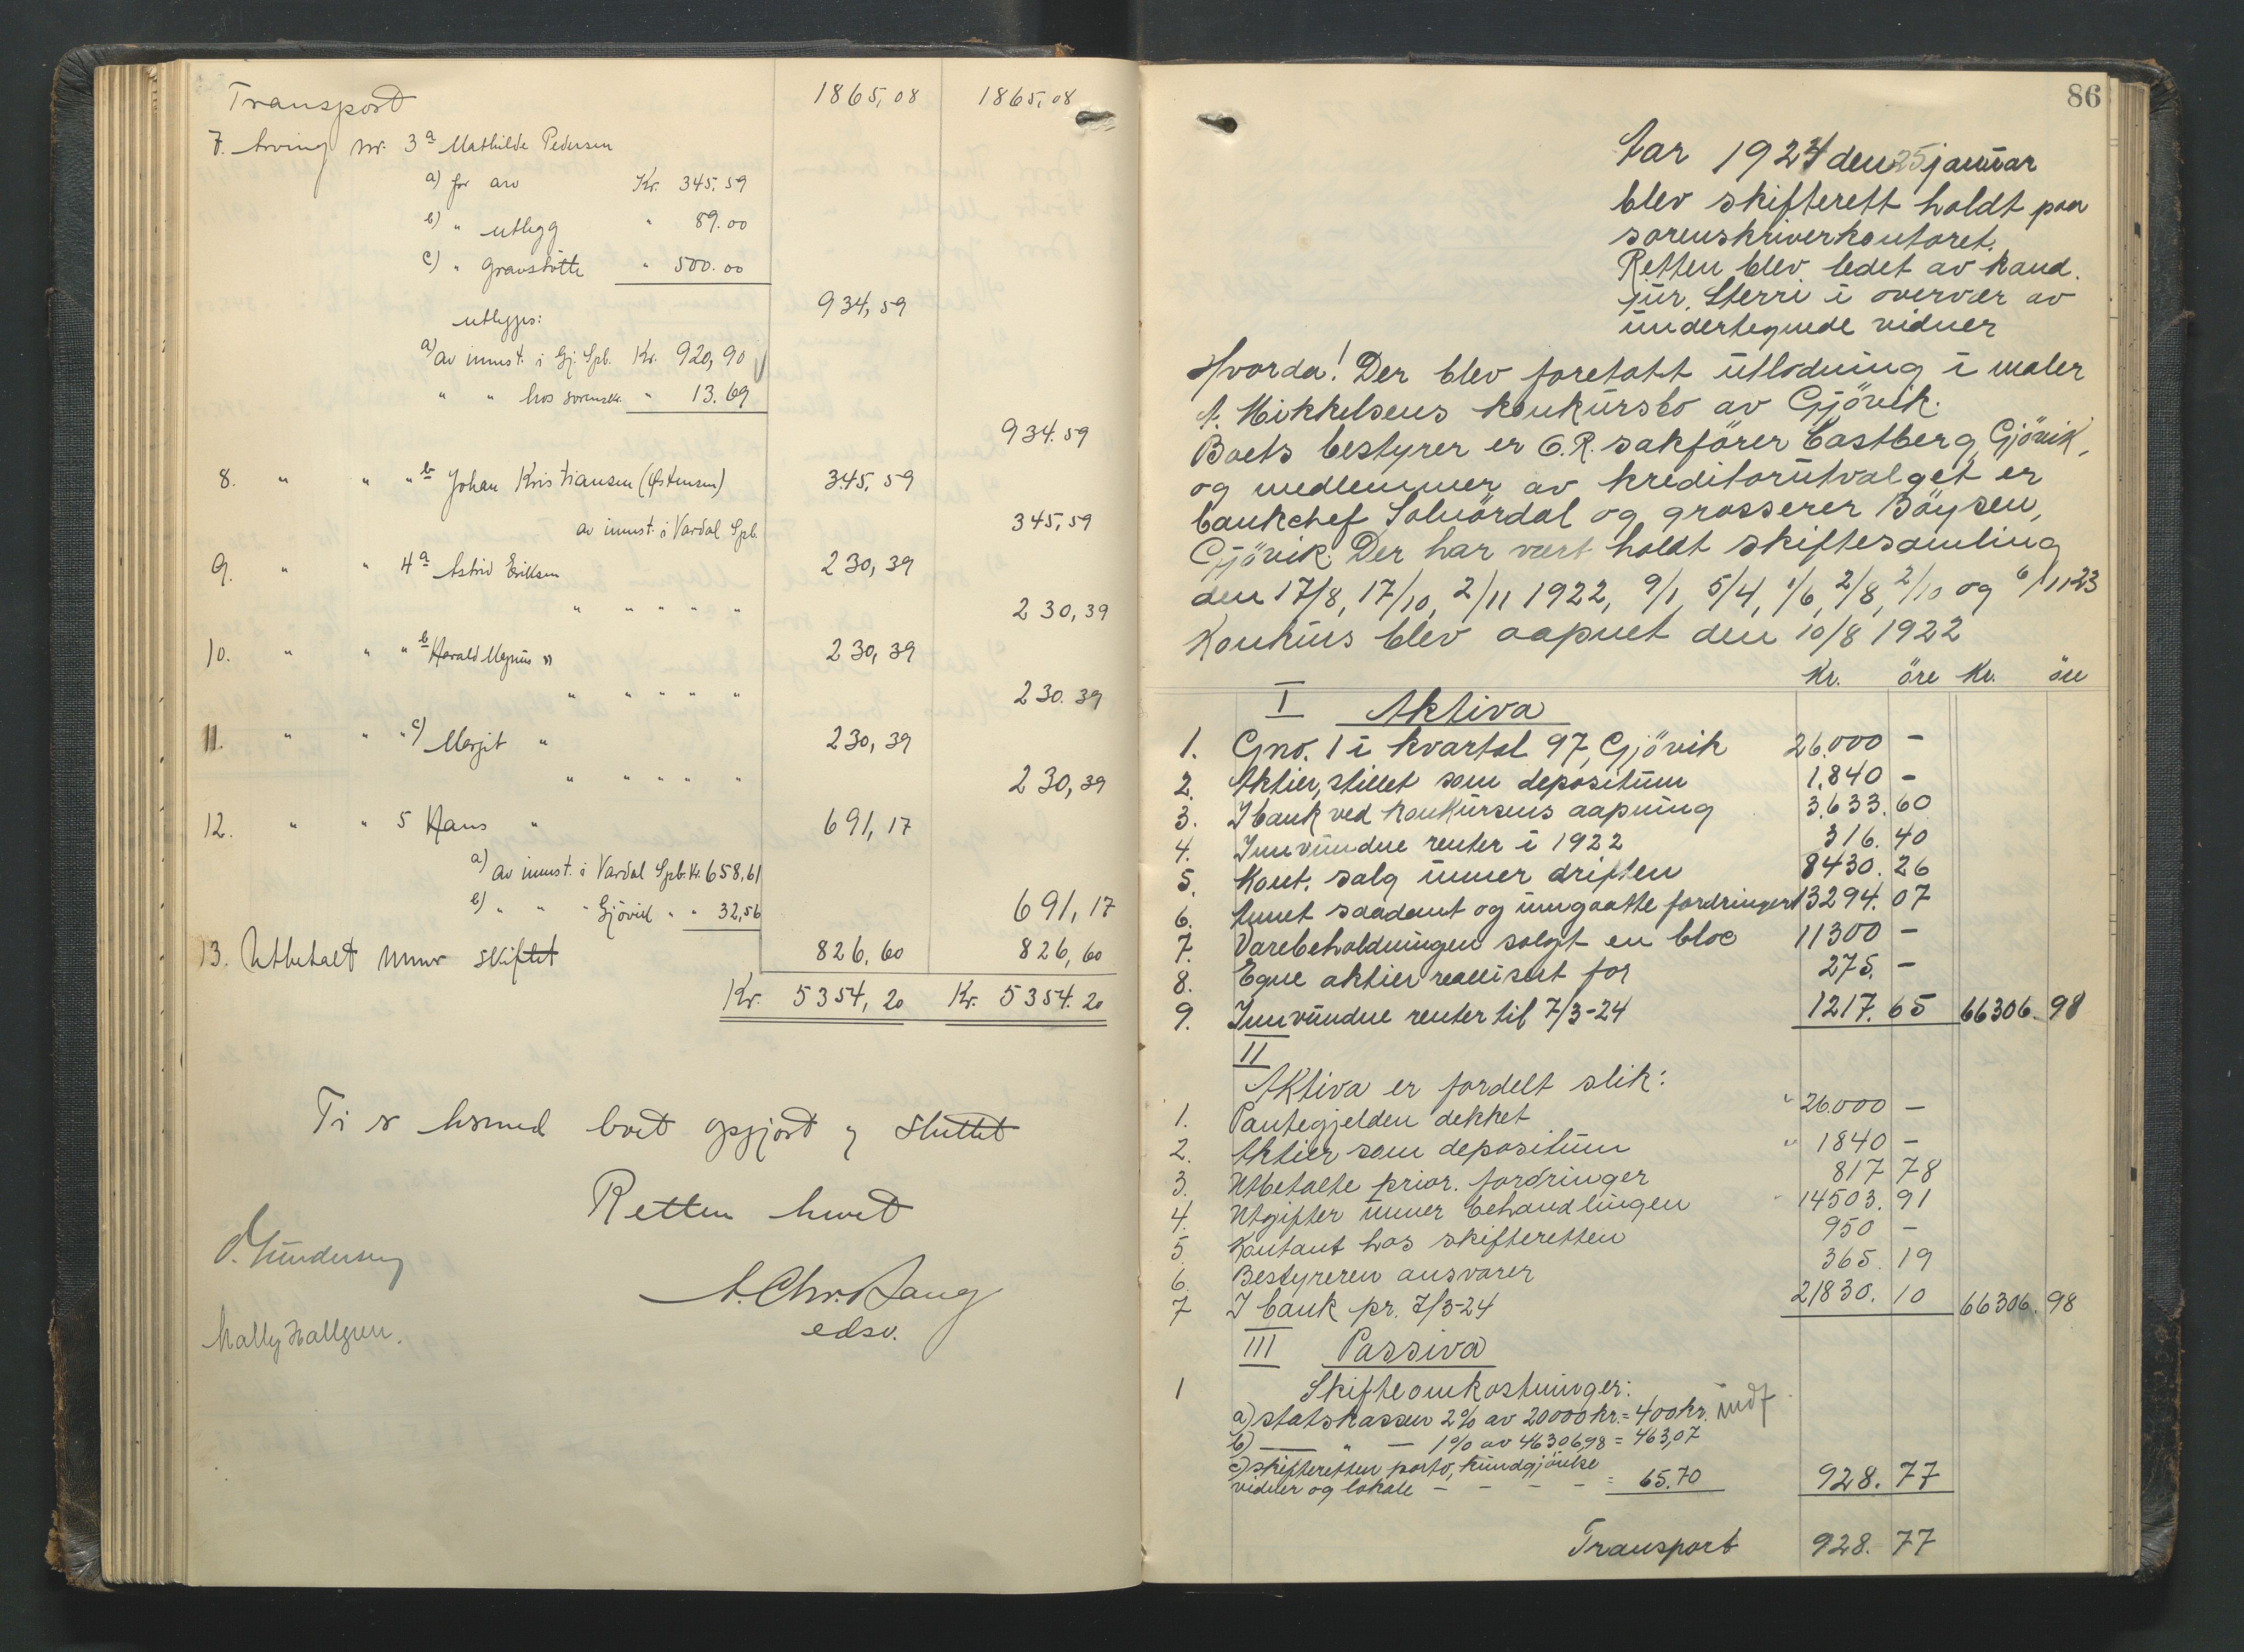 Transport 1865,08 1865,08
7. Arving nr. 3a Mathilde Pedersen
a) for arv Kr. 345.59
b) " utlegg " 89.00
c) " Gravstötte " 500.00
934,59
utlegges:
a) av innst. i Gj. Spb. Kr. 920,90
" " hos sorenskr. " 13.69
934.59
8. " " " b Johan Kristiansen (Østensen) 345,59
av innst. i Vardal Spb. 345,59
9. " " 4a Astrid Eriksen 230,39
" " " " " 230,39
10. " " " b Harald Magnus " 230,39
" " " " " 230.39
11. " " " c) Margit " 230,39
" " " " " 230,39
12. " " 5 Hans " 691,17
a) av innst. i Vardal Spb. Kr. 658,61
b) " " " Gjövik " " 32,56 691,17
13. Utbetalt under skiftet 826,60 826,60
Kr. 5354,20 Kr. 5354.20
Ti er hermed boet opgjort og sluttet
Retten hevet
O. Gundersen
A. Chr. Haug
edsv.
Mally Hallgren.
86
Aar 1924 den 25 januar
blev skifterett holdt paa
sorenskriverkontoret.
Retten blev ledet av kand.
jur. Sterri i overvær av
undertegnede vidner
Hvorda! Der blev foretatt utlodning i maler
A. Mikkelsens konkursbo av Gjövik.
Boets bestyrer er O.R. sakförer Castberg, Gjövik,
og medlemmer av kreditorutvalget er
bankchef Solvördal og grosserer Böysen,
Gjövik. Der har vært holdt skiftesamling
den 17/8, 17/10, 2/11 1922, 9/1, 5/4, 1/6, 2/8, 2/10 og 6/11 23
Konkurs blev aapnet den 10/8 1922
Kr. öre Kr. öre
I Aktiva
1. Gno. 1 i kvartal 97, Gjövik 26.000 -
2. Aktier, stillet som depositum 1.840 -
3. I bank ved konkursens aapning 3.633.60
4. Innvundne renter i 1922 316.40
5. Kont. salg under driften 8430.26
6. Annet saadant og inngaatte fordringer 13294.07
7. Varebeholdningen solgt en bloc 11300 -
8. Egne aktier reallisert for 275. -
9. Innvundne renter til 7/3-24 1217.65 66306.98
II
Aktiva er fordelt slik:
1. Pantegjelden dekket " 26.000 -
2. Aktier som depositum " 1840 -
3. Utbetalte prior. fordringer 817 78
4. Utgifter under behandlingen " 14503.91
5. Kontant hos skifteretten 950 -
6. Bestyreren ansvarer 365.19
7 I bank pr. 7/3-24 21830.10 66306.98
III Passiva
1 Skifteomkostninger:
a) statskassen 2% av 20000 kr. = 400 kr. indf
b) — " — 1% av 46306,98 = 463,07
c) skifteretten porto, kundgjörelse
vidner og lokale - - - - = 65.70 928.77
Transport 928.77